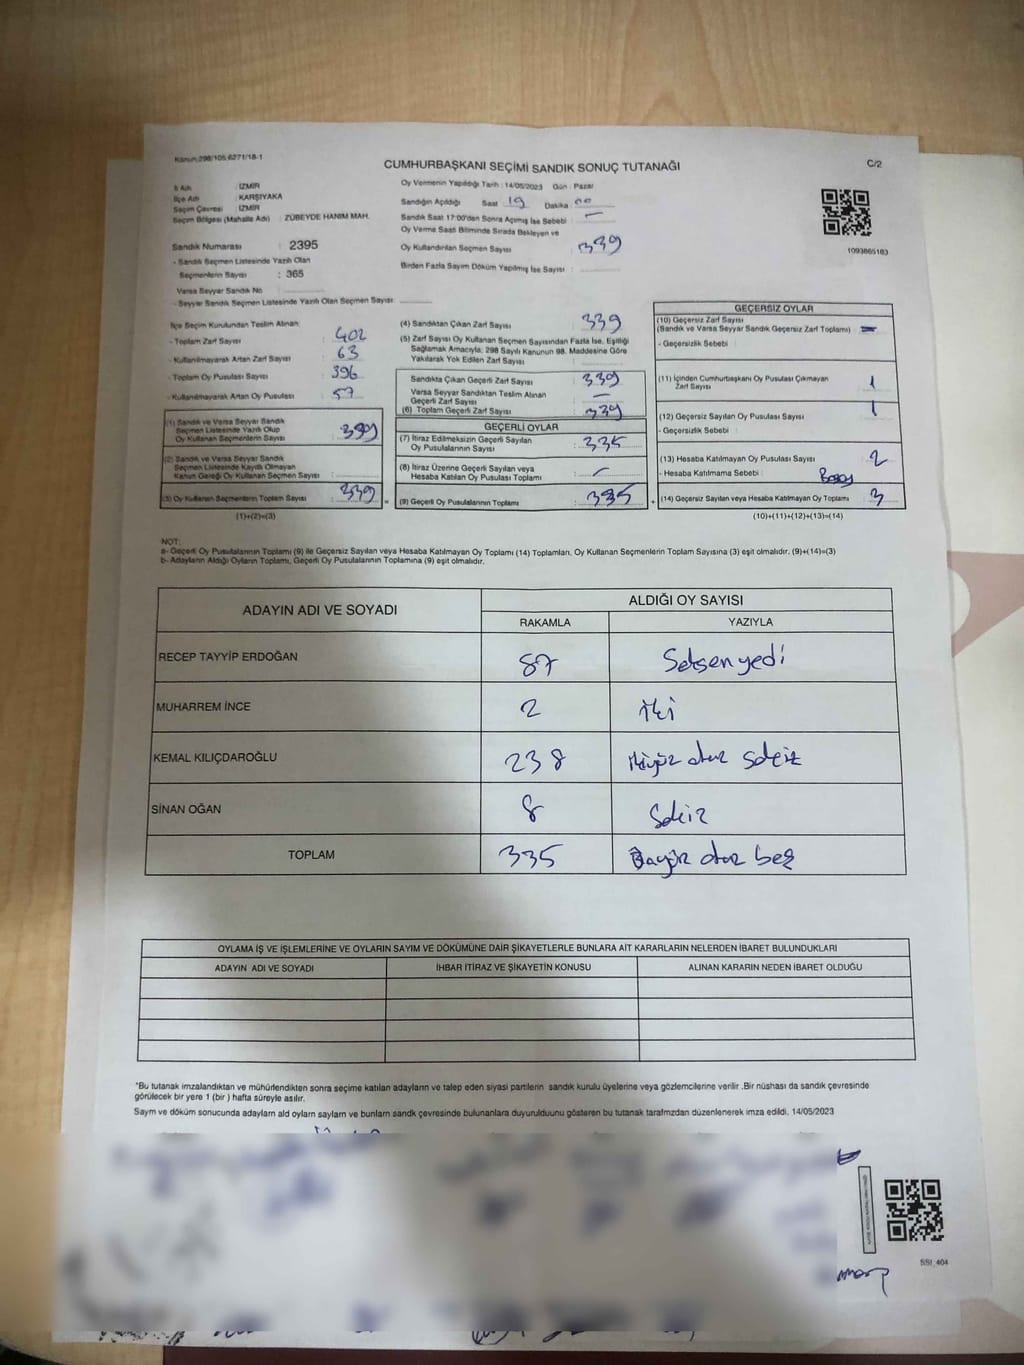 Kanun:298/105,6271/18-1
CUMHURBAŞKANI SEÇİMİ SANDIK SONUÇ TUTANAĞI
C/2
İl Adı : İZMİR
İlçe Adı : KARŞIYAKA
Seçim Çevresi : İZMİR
Seçim Bölgesi (Mahalle Adı) : ZÜBEYDE HANIM MAH.
Sandık Numarası : 2395
- Sandık Seçmen Listesinde Yazılı Olan
Seçmenlerin Sayısı : 365
Varsa Seyyar Sandık No
- Seyyar Sandık Seçmen Listesinde Yazılı Olan Seçmen Sayısı:
Oy Vermenin Yapıldığı Tarih : 14/05/2023 Gün : Pazar
Sandığın Açıldığı Saat 19 Dakika 00
Sandık Saat 17:00'den Sonra Açılmış İse Sebebi : -
Oy Verme Saati Bitiminde Sırada Bekleyen ve
Oy Kullandırılan Seçmen Sayısı : 339
Birden Fazla Sayım Döküm Yapılmış İse Sayısı :
1093865183
İlçe Seçim Kurulundan Teslim Alınan:
- Toplam Zarf Sayısı : 402
- Kullanılmayarak Artan Zarf Sayısı : 63
- Toplam Oy Pusulası Sayısı : 396
- Kullanılmayarak Artan Oy Pusulası : 57
(1) Sandık ve Varsa Seyyar Sandık
Seçmen Listesinde Yazılı Olup
Oy Kullanan Seçmenlerin Sayısı : 339
(2) Sandık ve Varsa Seyyar Sandık
Seçmen Listesinde Kayıtlı Olmayan
Kanun Gereği Oy Kullanan Seçmen Sayısı :
(3) Oy Kullanan Seçmenlerin Toplam Sayısı : 339
(1)+(2)=(3)
(4) Sandıktan Çıkan Zarf Sayısı : 339
(5) Zarf Sayısı Oy Kullanan Seçmen Sayısından Fazla İse, Eşitliği
Sağlamak Amacıyla, 298 Sayılı Kanunun 98. Maddesine Göre
Yakılarak Yok Edilen Zarf Sayısı :
Sandıkta Çıkan Geçerli Zarf Sayısı : 339
Varsa Seyyar Sandıktan Teslim Alınan
Geçerli Zarf Sayısı : -
(6) Toplam Geçerli Zarf Sayısı : 339
GEÇERLİ OYLAR
(7) İtiraz Edilmeksizin Geçerli Sayılan
Oy Pusulalarının Sayısı : 335
(8) İtiraz Üzerine Geçerli Sayılan veya
Hesaba Katılan Oy Pusulası Toplamı : -
(9) Geçerli Oy Pusulalarının Toplamı : 335
GEÇERSİZ OYLAR
(10) Geçersiz Zarf Sayısı
(Sandık ve Varsa Seyyar Sandık Geçersiz Zarf Toplamı) :
- Geçersizlik Sebebi :
(11) İçinden Cumhurbaşkanı Oy Pusulası Çıkmayan
Zarf Sayısı : 1
(12) Geçersiz Sayılan Oy Pusulası Sayısı : 1
- Geçersizlik Sebebi :
(13) Hesaba Katılmayan Oy Pusulası Sayısı : 2
- Hesaba Katılmama Sebebi :
(14) Geçersiz Sayılan veya Hesaba Katılmayan Oy Toplamı : 3
(10)+(11)+(12)+(13)=(14)
NOT:
a- Geçerli Oy Pusulalarının Toplamı (9) ile Geçersiz Sayılan veya Hesaba Katılmayan Oy Toplamı (14) Toplamları, Oy Kullanan Seçmenlerin Toplam Sayısına (3) eşit olmalıdır. (9)+(14)=(3)
b- Adayların Aldığı Oyların Toplamı, Geçerli Oy Pusulalarının Toplamına (9) eşit olmalıdır.
ADAYIN ADI VE SOYADI
ALDIĞI OY SAYISI
RAKAMLA YAZIYLA
RECEP TAYYİP ERDOĞAN 87 Seksenyedi
MUHARREM İNCE 2 iki
KEMAL KILIÇDAROĞLU 238 ikiyüz otuz sekiz
SİNAN OĞAN 8 Sekiz
TOPLAM 335 üçyüz otuz beş
OYLAMA İŞ VE İŞLEMLERİNE VE OYLARIN SAYIM VE DÖKÜMÜNE DAİR ŞİKAYETLERLE BUNLARA AİT KARARLARIN NELERDEN İBARET BULUNDUKLARI
ADAYIN ADI VE SOYADI İHBAR İTİRAZ VE ŞİKAYETİN KONUSU ALINAN KARARIN NEDEN İBARET OLDUĞU
*Bu tutanak imzalandıktan ve mühürlendikten sonra seçime katılan adayların ve talep eden siyasi partilerin sandık kurulu üyelerine veya gözlemcilerine verilir .Bir nüshası da sandık çevresinde
görülecek bir yere 1 (bir ) hafta süreyle asılır.
Sayım ve döküm sonucunda adayların ald oyların sayların ve bunların sandk çevresinde bulunanlara duyurulduunu gösteren bu tutanak tarafımzdan düzenlenerek imza edildi. 14/05/2023
SSI_404